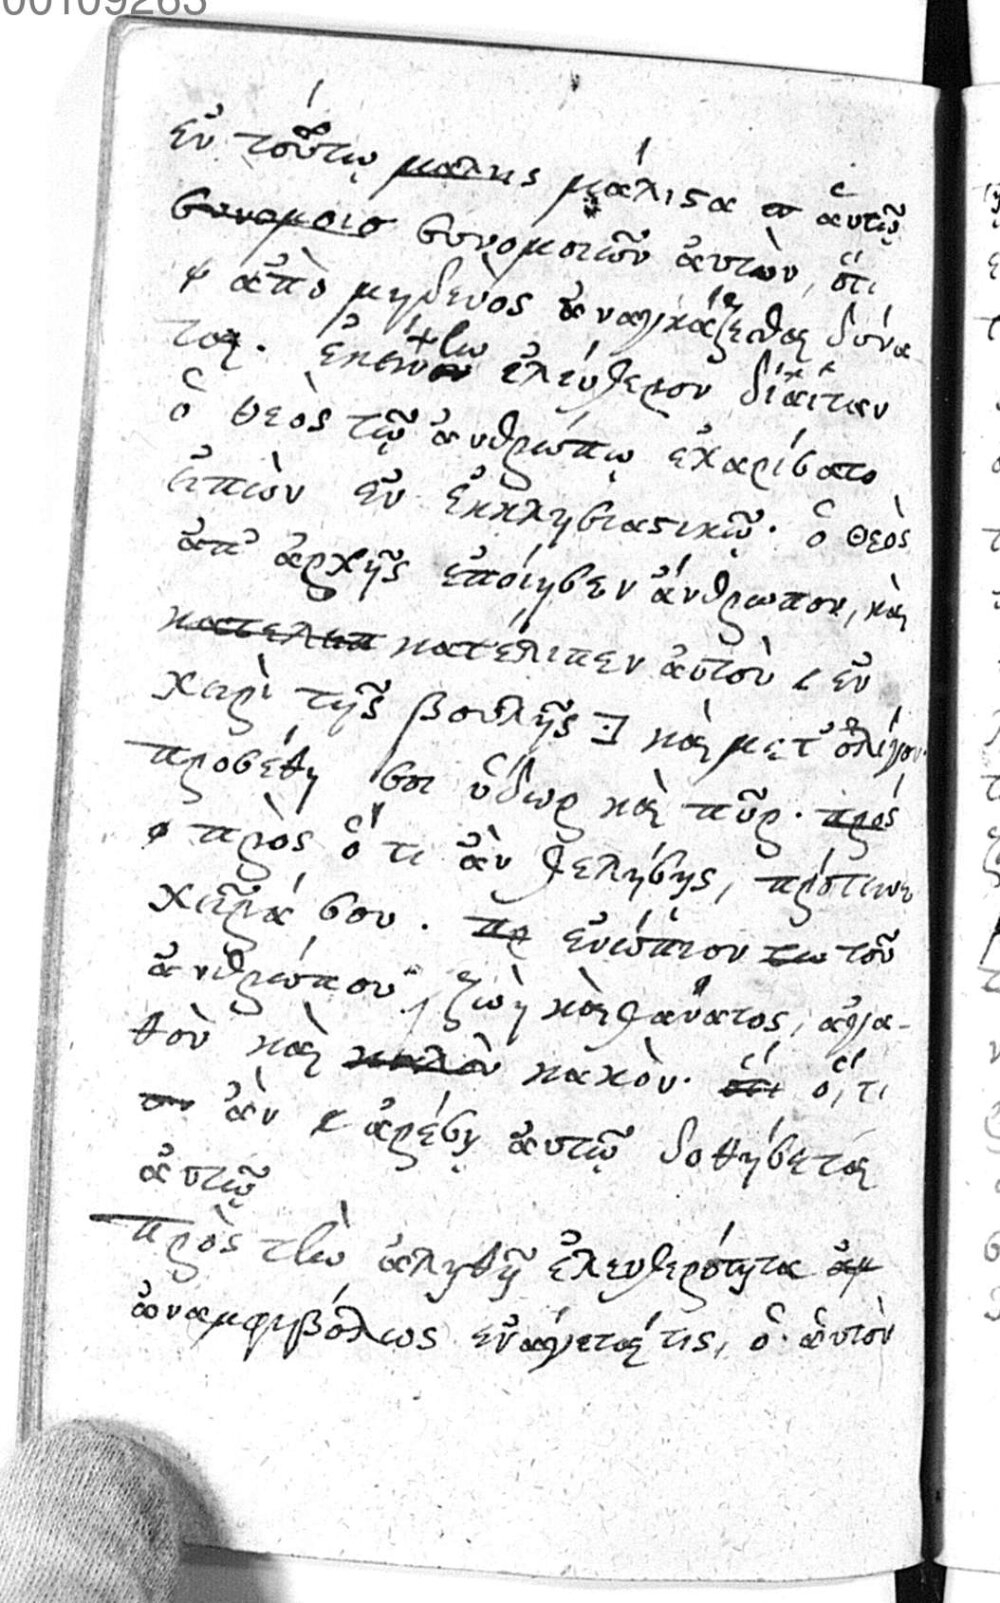 00109263
ἐν τούτῳ μάλις μάλιστα αὑτῷ
συνομοιο συνομοιῶν ἀυτὸν, ὅτι
ἀπὸ μηδενὸς ἀναγκάζεσθαι δύνα
ται. ἐκείνην ἐλέυθερον δίαιταν
ὁ θεὸς τῷ ἀνθρώπῳ ἐχαρίσατο
ἐιπὼν ἐν ἐκκλησιαστικῷ. ὁ θεὸς
ἀπ' ἀρχῆς ἐποίησεν ἄνθρωπον, καὶ
κατελιπ κατέλιπεν ἀυτὸν ἐν
χειρὶ τῆς βουλῆς καὶ μετ' ὀλίγον.
προσέθη σοι ὕδωρ καὶ πῦρ. πρός
πρὸς ὅ τι ἂν θελήσης, πρότεινε
χεῖρά σου. πρ ἐνώπιον τω τοῦ
ἀνθρώπου, ζωὴ καὶ θάνατος, ἀγα-
θὸν καὶ καλὸν κακὸν. ὅτι ὅ, τι
ἂν ἀρέσῃ ἀυτῷ δοθήσεται
ἀυτῷ
πρὸς τὴν ἀληθῆ ἐλευθερότητα ἀμ
ἀναμφιβόλως ἐνάγεταί τις, ὁ ἀυτὸν